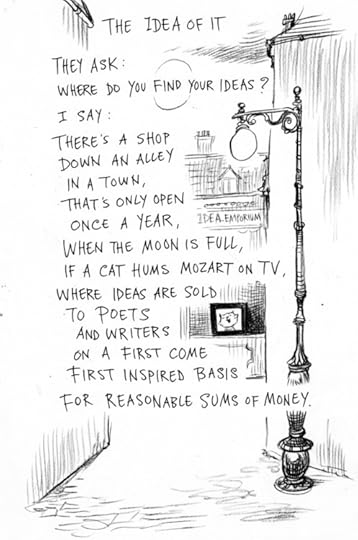 THE IDEA OF IT
THEY ASK:
WHERE DO YOU FIND YOUR IDEAS?
I SAY:
THERE'S A SHOP
DOWN AN ALLEY
IN A TOWN,
THAT'S ONLY OPEN
ONCE A YEAR,
IDEA.EMPORIUM
WHEN THE MOON IS FULL,
IF A CAT HUMS MOZART ON TV,
WHERE IDEAS ARE SOLD
TO POETS
AND WRITERS
ON A FIRST COME
FIRST INSPIRED BASIS
FOR REASONABLE SUMS OF MONEY.